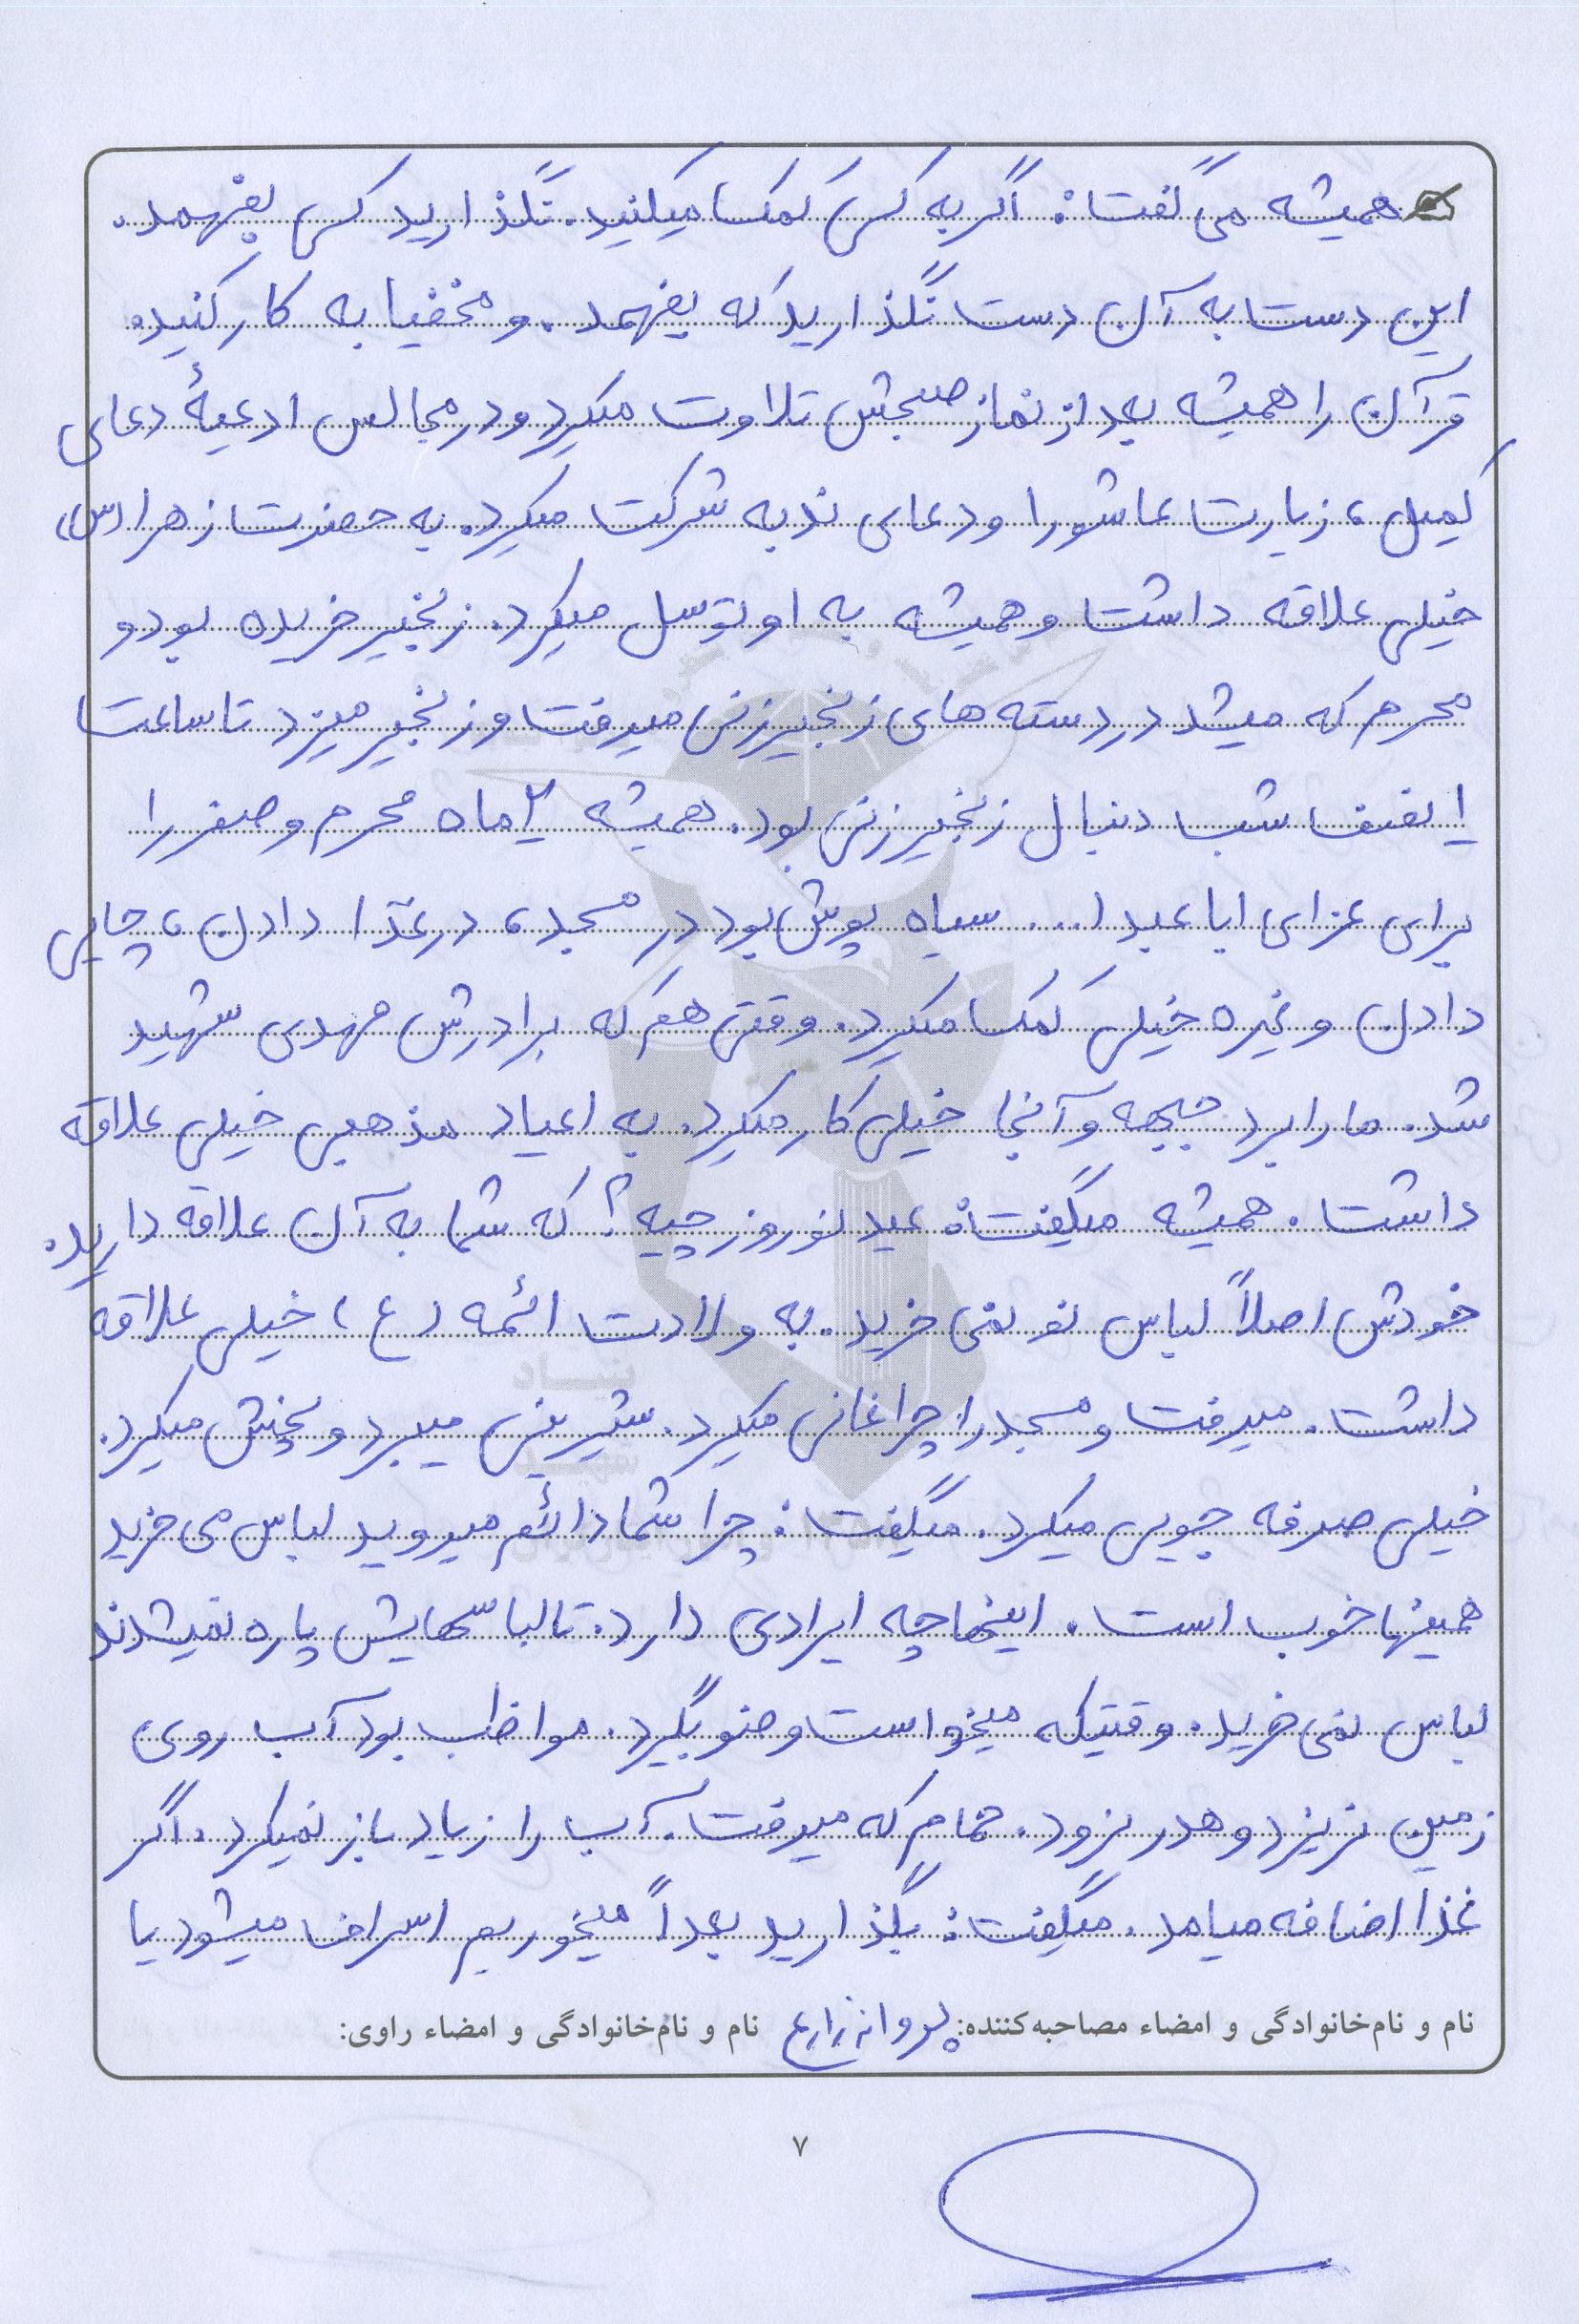 همیشه می گفت: اگر به کسی کمک میکنید. نگذارید کسی بفهمد.
این دست به آن دست نگذارید که بفهمد. و مخفیا به کار کنید.
قرآن را همیشه بعد از نماز صبحش تلاوت میکرد و در مجالس ادعیهٔ دعای
کمیل، زیارت عاشورا و دعای ندبه شرکت میکرد. به حضرت زهرا (س)
خیلی علاقه داشت و همیشه به او توسل میکرد. زنجیر خریده بود و
محرم که میشد در دسته های زنجیرزنی میرفت و زنجیر میزد تا ساعت
۱ نصف شب دنبال زنجیرزنی بود. همیشه ۲ ماه محرم و صفر را
برای عزای اباعبدا... سیاه پوش بود در مسجد، در غذا دادن، چایی
دادن و غیره خیلی کمک میکرد. وقتی هم که برادرش مهدی شهید
شد. ما را برد جبهه و آنجا خیلی کار میکرد. به اعیاد مذهبی خیلی علاقه
داشت. همیشه میگفت: عید نوروز چیه؟ که شما به آن علاقه دارید.
خودش اصلاً لباس نو نمی خرید. به ولادت ائمه (ع) خیلی علاقه
داشت. میرفت و مسجد را چراغانی میکرد. شیرینی میبرد و پخش میکرد.
خیلی صرفه جویی میکرد. میگفت: چرا شما دائم میروید لباس می خرید
همینها خوب است. اینها چه ایرادی دارد. تا لباسهایش پاره نمیشدند
لباس نمی خرید. وقتیکه میخواست وضو بگیرد. مواظب بود آب روی
زمین نریزد و هدر نرود. حمام که میرفت. آب را زیاد باز نمیکرد. اگر
غذا اضافه میامد. میگفت: بگذارید بعداً میخوریم اسراف میشود یا
نام و نام‌خانوادگی و امضاء مصاحبه‌کننده: پروانه زارع نام و نام‌خانوادگی و امضاء راوی:
۷